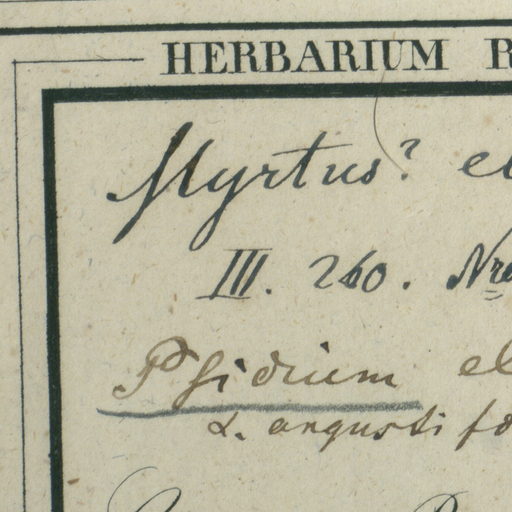 HERBARIUM R
Myrtus? el
III. 260. Nro
Psidium el
α. angusti fo